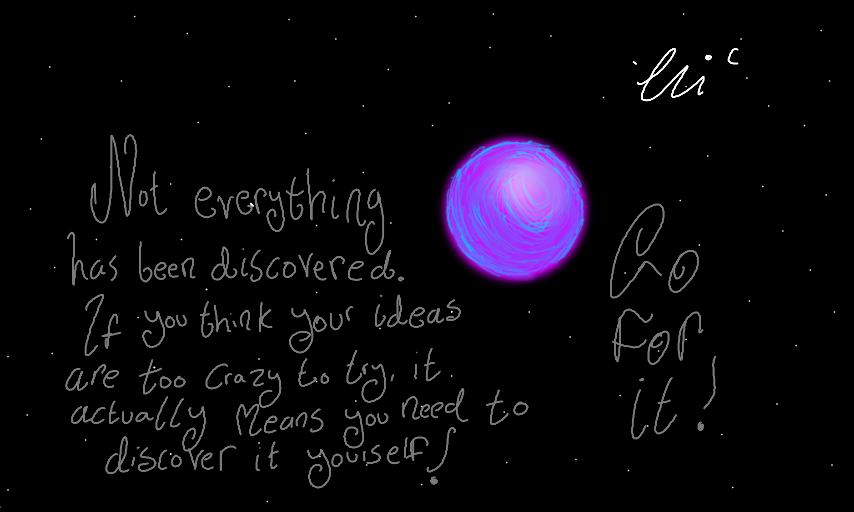 Not everything
has been discovered.
If you think your ideas
are too crazy to try, it
actually means you need to
discover it yourself!
Go
for
it!